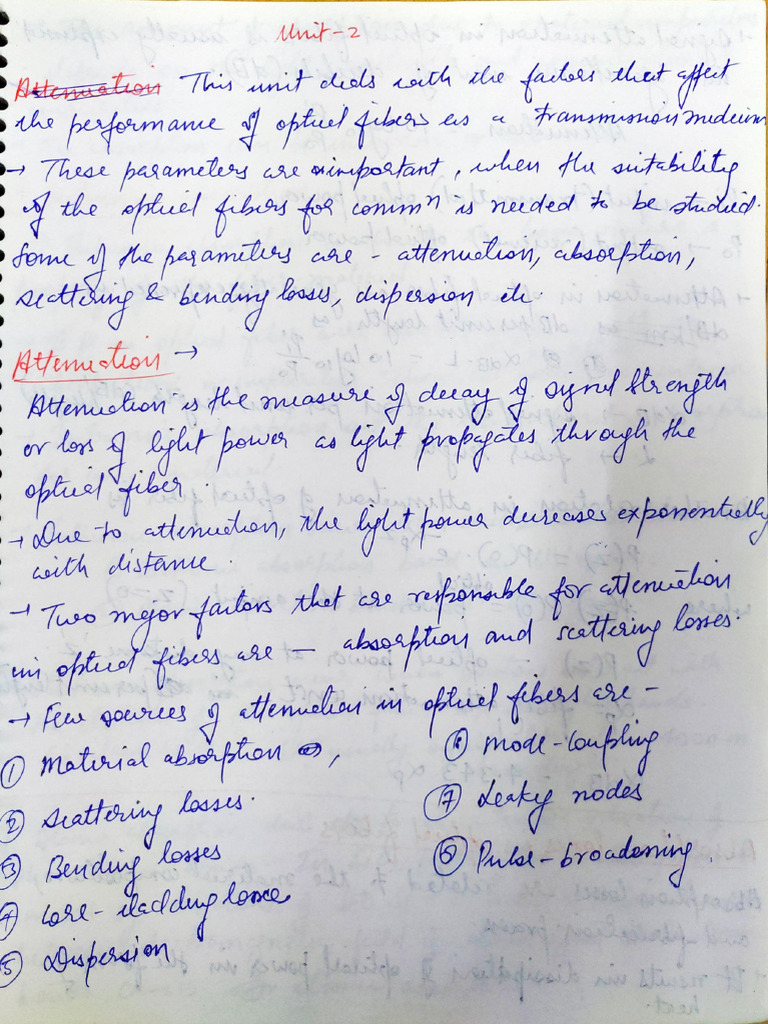 Unit-2
Attenuation This unit deals with the factors that affect
the performance of optical fibers as a transmission medium
→ These parameters are important, when the suitability
of the optical fibers for commⁿ is needed to be studied.
Some of the parameters are - attenuation, absorption,
scattering & bending losses, dispersion etc
Attenuation →
Attenuation is the measure of decay of signal strength
or loss of light power as light propagates through the
optical fiber.
→ Due to attenuation, the light power decreases exponentially
with distance.
→ Two major factors that are responsible for attenuation
in optical fibers are — absorption and scattering losses.
→ Few sources of attenuation in optical fibers are —
① Material absorption,
② Scattering losses.
③ Bending losses
④ Core-cladding losses
⑤ Dispersion
⑥ Mode-coupling
⑦ Leaky nodes
⑧ Pulse-broadening.